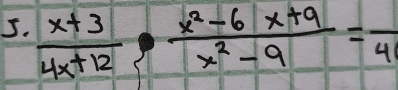 5. \frac{x+3}{4x+12} \cdot \frac{x^2-6x+9}{x^2-9} = \frac{}{4}